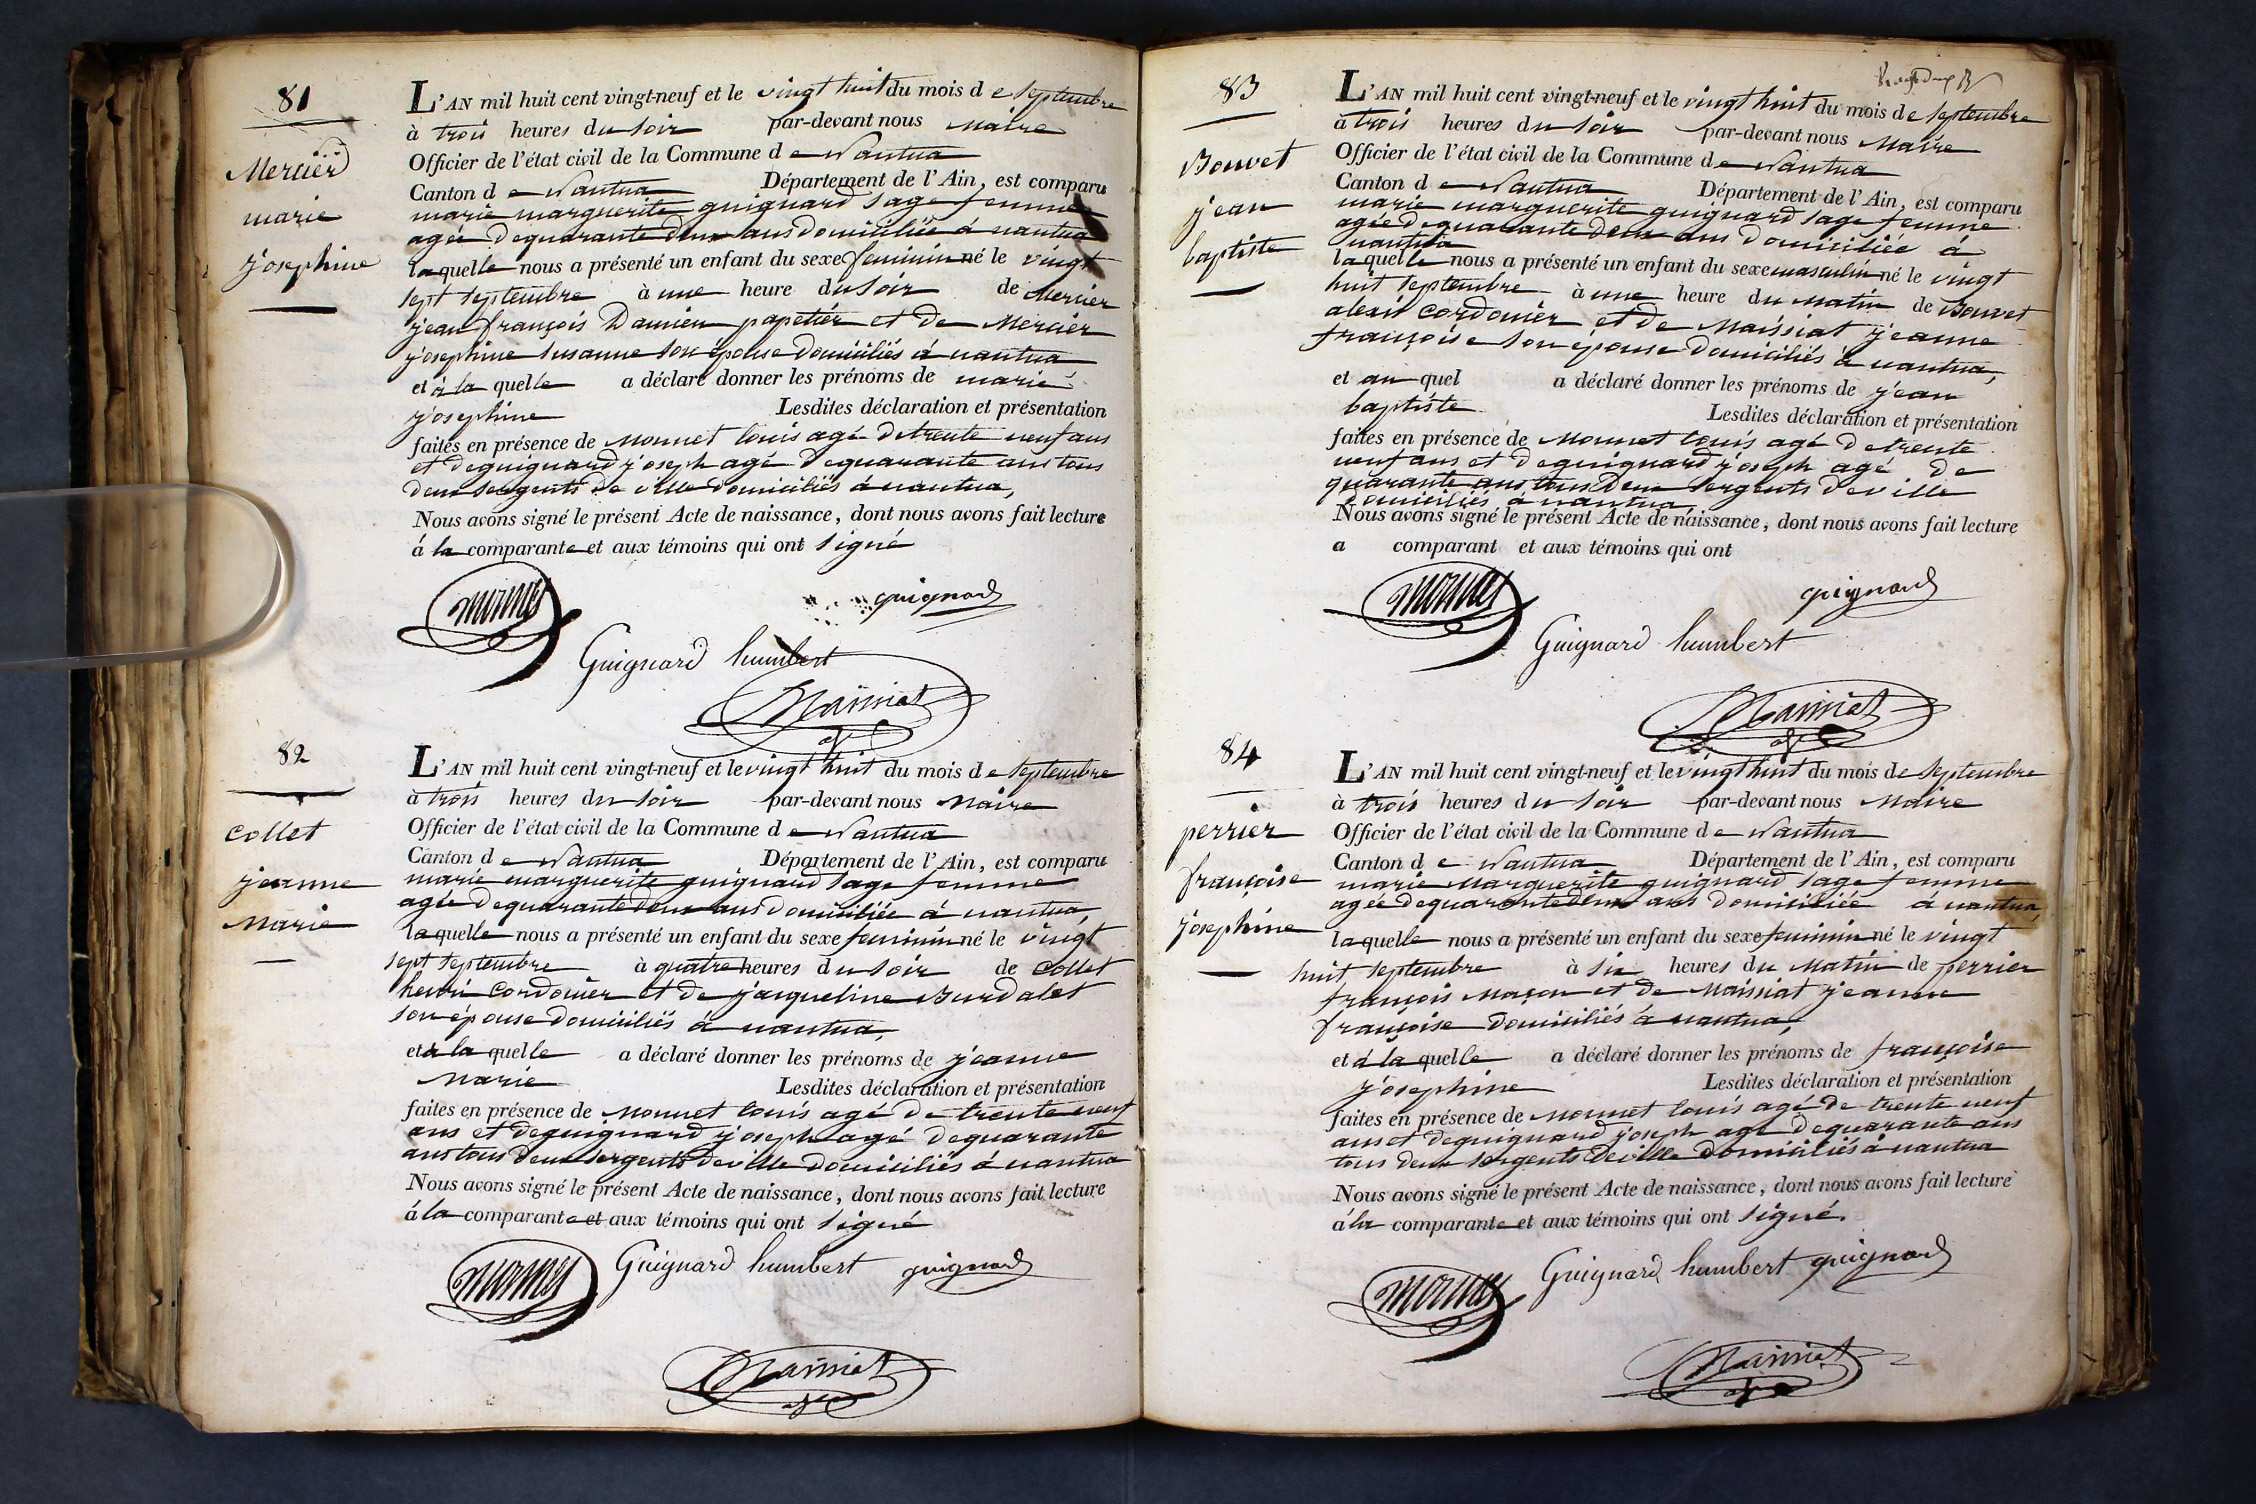 81
Mercier
marie
josephine
L'AN mil huit cent vingt-neuf et le vingt huit du mois de septembre
à trois heures du soir par-devant nous Maire
Officier de l'état civil de la Commune de Nantua
Canton de Nantua Département de l'Ain, est comparu
marie marguerite guignard sage femme
agée de quarante deux ans domiciliée á nantua
laquelle nous a présenté un enfant du sexe feminin né le vingt
sept septembre à une heure du soir de Mercier
jean françois Damien papetier et de Mercier
josephine susanne son épouse domiciliés á nantua
et à la quelle a déclaré donner les prénoms de marie
josephine Lesdites déclaration et présentation
faites en présence de Monnet louis agé de trente neuf ans
et de guignard joseph agé de quarante ans tous
deux sergents de ville domiciliés á nantua,
Nous avons signé le présent Acte de naissance, dont nous avons fait lecture
á la comparante et aux témoins qui ont signé
monnet
guignard
Guignard humbert
Maissiat
82
collet
jeanne
Marie
L'AN mil huit cent vingt-neuf et le vingt huit du mois de septembre
à trois heures du soir par-devant nous Maire
Officier de l'état civil de la Commune de Nantua
Canton de Nantua Département de l'Ain, est comparu
marie marguerite guignard sage femme
agée de quarante deux ans domiciliée á nantua,
laquelle nous a présenté un enfant du sexe feminin né le vingt
sept septembre à quatre heures du soir de collet
henri cordonier et de jacqueline Burdalet
son épouse domiciliés á nantua,
et à la quelle a déclaré donner les prénoms de jeanne
Marie Lesdites déclaration et présentation
faites en présence de Monnet louis agé de trente neuf
ans et de guignard joseph agé de quarante
ans tous deux sergents de ville domiciliés á nantua
Nous avons signé le présent Acte de naissance, dont nous avons fait lecture
á la comparante et aux témoins qui ont signé
monnet Guignard humbert guignard
Maissiat
83
Bouvet
jean
baptiste
L'AN mil huit cent vingt-neuf et le vingt huit du mois de septembre
à trois heures du soir par-devant nous Maire
Officier de l'état civil de la Commune de Nantua
Canton de Nantua Département de l'Ain, est comparu
marie marguerite guignard sage femme
agée de quarante deux ans domiciliée á
nantua
laquelle nous a présenté un enfant du sexe masculin né le vingt
huit septembre à une heure du matin de Bouvet
alexis cordonier et de Maissiat jeanne
françoise son épouse domiciliés á nantua,
et au quel a déclaré donner les prénoms de jean
baptiste Lesdites déclaration et présentation
faites en présence de Monnet louis agé de trente
neuf ans et de guignard joseph agé de
quarante ans tous deux sergents de ville
domiciliés á nantua,
Nous avons signé le présent Acte de naissance, dont nous avons fait lecture
a comparant et aux témoins qui ont
monnet
guignard
Guignard humbert
Maissiat
84
perrier
françoise
josephine
L'AN mil huit cent vingt-neuf et le vingt huit du mois de septembre
à trois heures du soir par-devant nous Maire
Officier de l'état civil de la Commune de Nantua
Canton de Nantua Département de l'Ain, est comparu
marie Marguerite guignard sage femme
agée de quarante deux ans domiciliée á nantua,
laquelle nous a présenté un enfant du sexe feminin né le vingt
huit septembre à six heures du Matin de perrier
françois Maçon et de Maissiat jeanne
françoise domiciliés á nantua,
et á la quelle a déclaré donner les prénoms de françoise
josephine Lesdites déclaration et présentation
faites en présence de Monnet louis agé de trente neuf
ans et de guignard joseph agé de quarante ans
tous deux sergents de ville domiciliés á nantua
Nous avons signé le présent Acte de naissance, dont nous avons fait lecture
á la comparante et aux témoins qui ont signé.
monnet Guignard humbert guignard
Maissiat